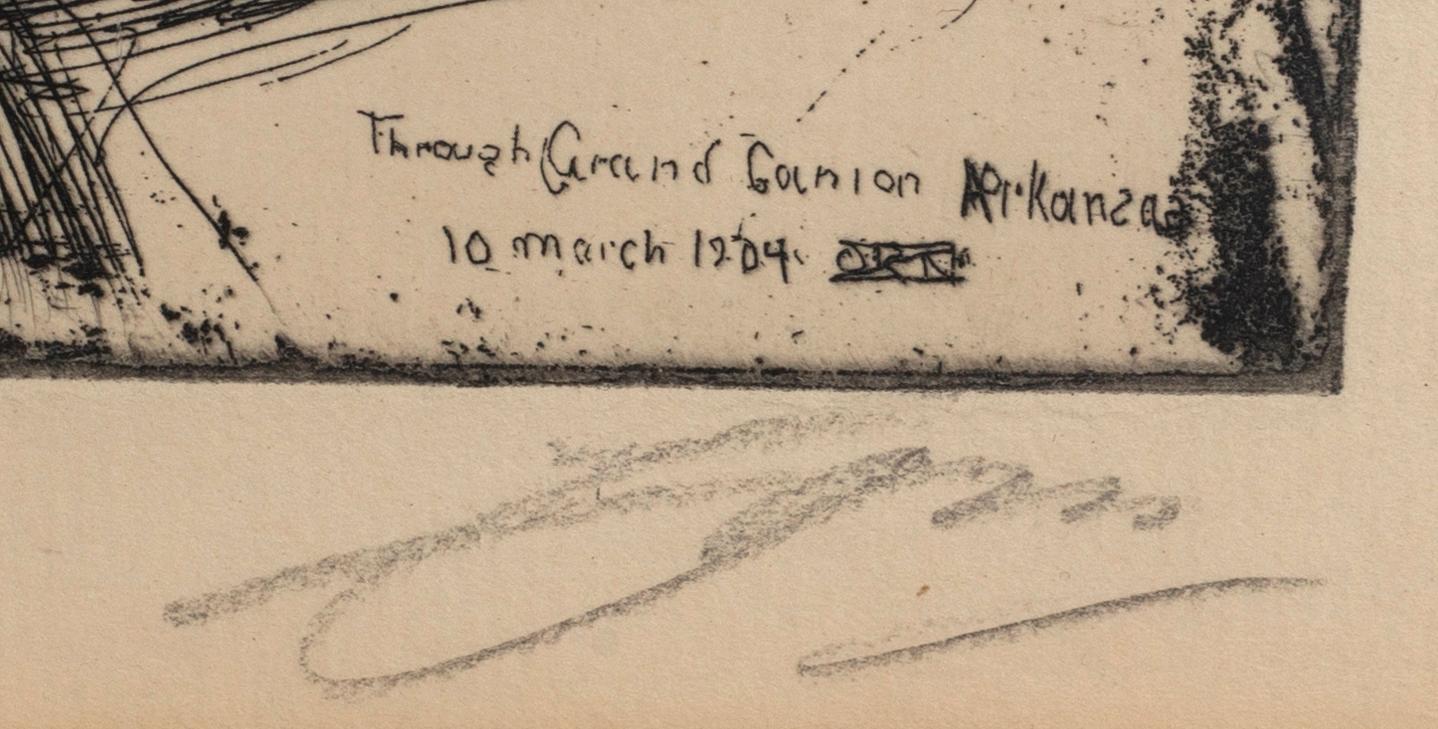 Through Grand Canion Arkanzas
10 march 1904.
Zorn